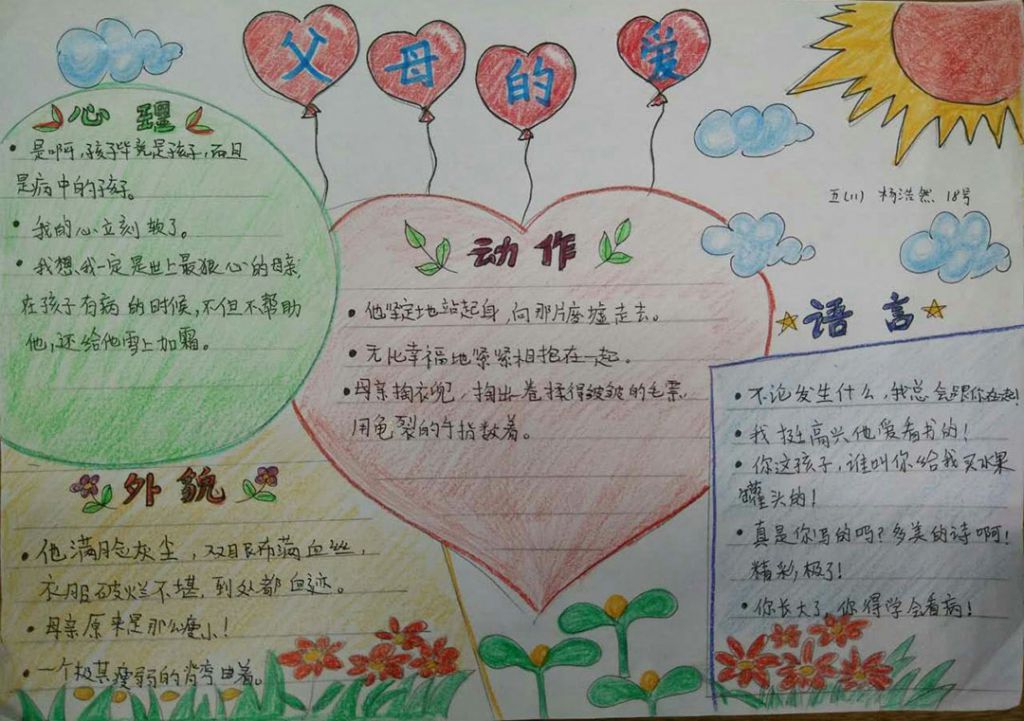 父母的爱
五(1) 杨浩然 18号
心理
• 是啊,孩子毕竟是孩子,而且
是病中的孩子。
• 我的心立刻软了。
• 我想,我一定是世上最狠心的母亲,
在孩子有病的时候,不但不帮助
他,还给他雪上加霜。
动作
• 他坚定地站起身,向那片废墟走去。
• 无比幸福地紧紧相抱在一起。
• 母亲掏衣兜,掏出一卷揉得皱皱的毛票,
用龟裂的手指数着。
语言
• 不论发生什么,我总会跟你在一起!
• 我挺高兴他爱看书的!
• 你这孩子,谁叫你给我买水果
罐头的!
• 真是你写的吗?多美的诗啊!
精彩极了!
• 你长大了,你得学会看病!
外貌
• 他满脸灰尘,双眼布满血丝,
衣服破烂不堪,到处都血迹。
• 母亲原来是那么瘦小!
• 一个极其瘦弱的背弯曲着。